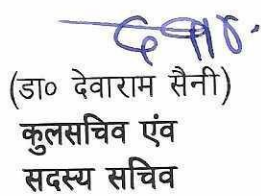 (डा० देवाराम सैनी)
कुलसचिव एंव
सदस्य सचिव